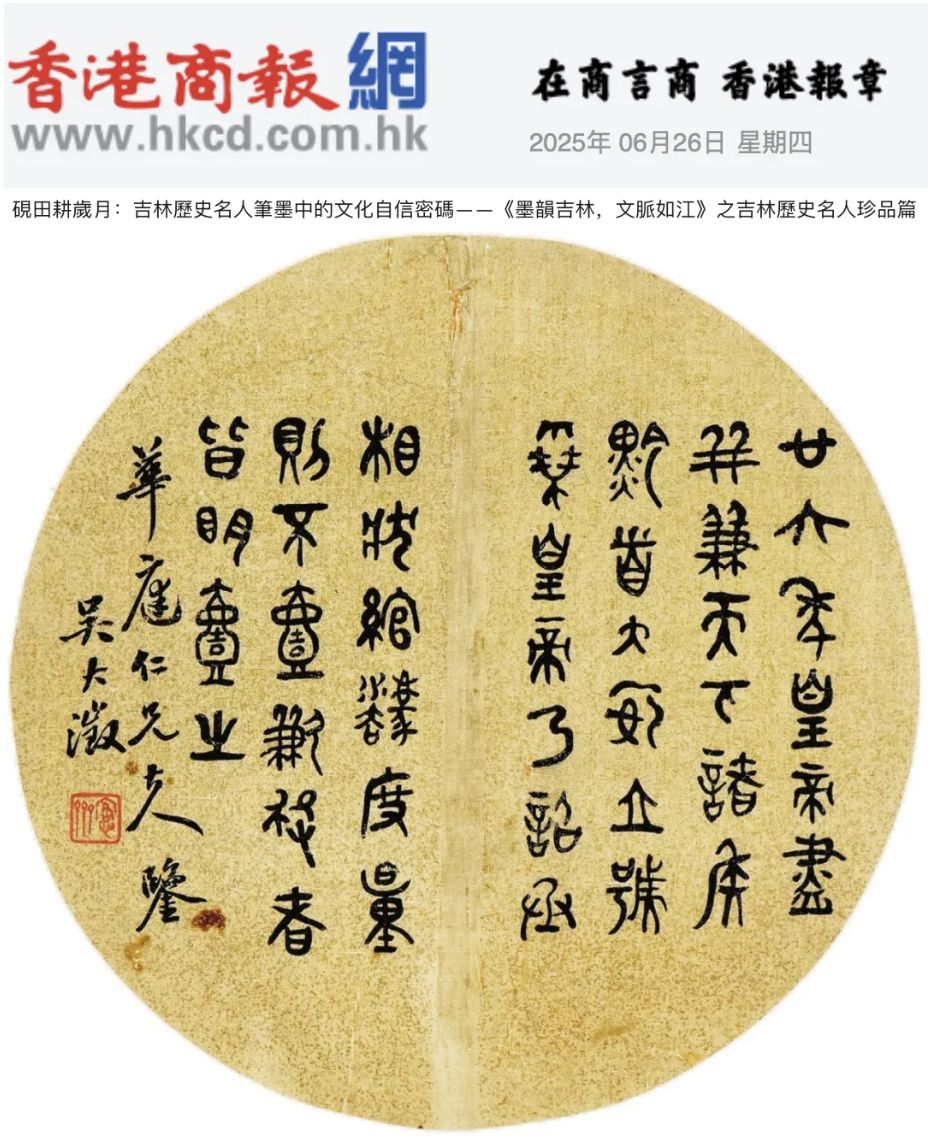 香港商報網
www.hkcd.com.hk
在商言商 香港報章
2025年 06月26日 星期四
硯田耕歲月：吉林歷史名人筆墨中的文化自信密碼——《墨韻吉林，文脈如江》之吉林歷史名人珍品篇
廿六年皇帝盡
并兼天下諸侯
黔首大安立號
為皇帝乃詔丞
相狀綰灋度量
則不壹歉疑者
皆明壹之
華庭仁兄大人鑒
吳大澂